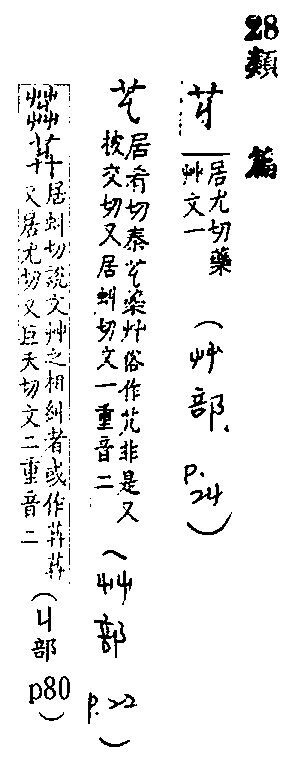 28類篇
居尤切藥
艸文一
(艸部. p.24)
居肴切秦芁藥艸俗作艽非是又
披交切又居虯切文一重音二
(艸部 p.22)
居虯切說文艸之相糾者或作
又居尤切又巨夭切文二重音二
(丩部 p80)